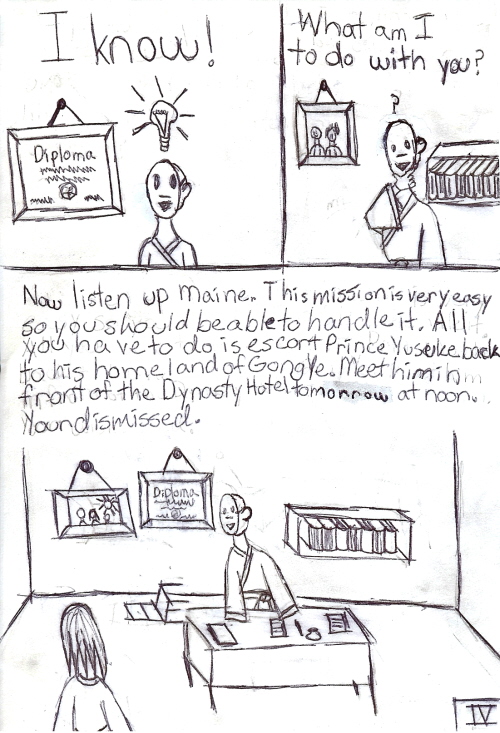 I know!
Diploma
What am I
to do with you?
?
Now listen up Maine. This mission is very easy
so you should be able to handle it. All
you have to do is escort Prince Yusuke back
to his homeland of GongYe. Meet him in
front of the Dynasty Hotel tomorrow at noon.
Your dismissed.
Diploma
IV